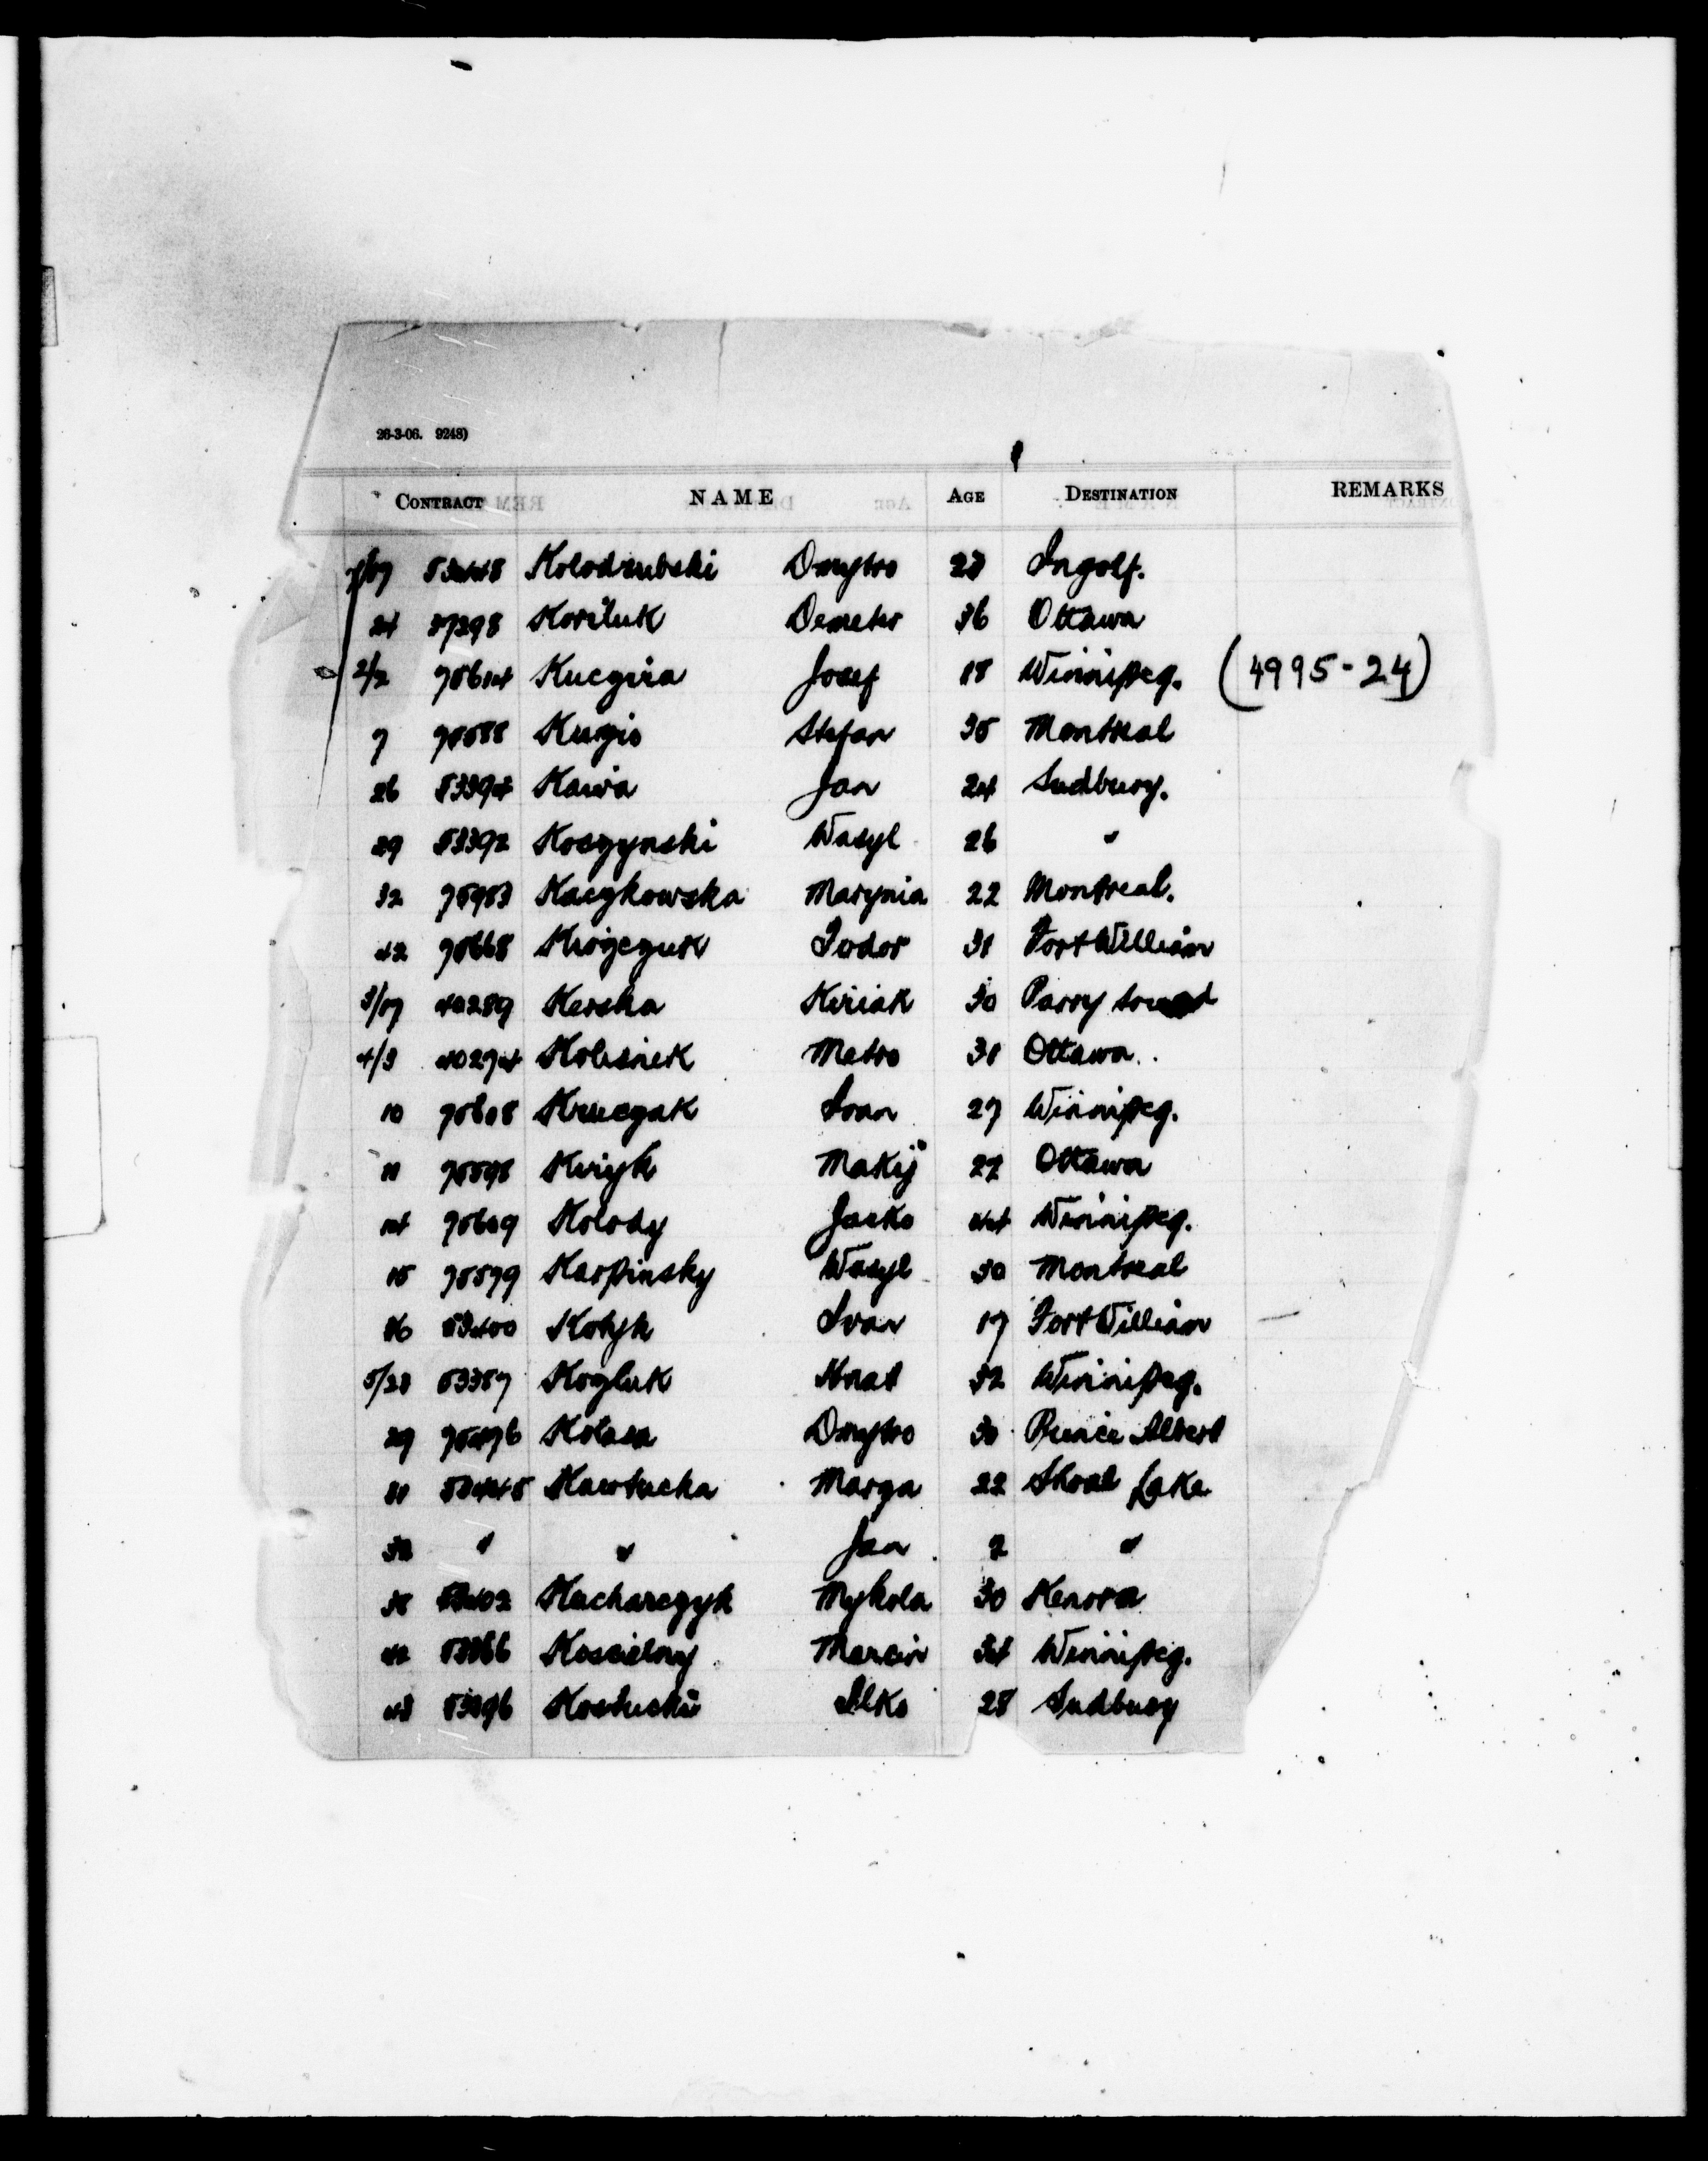 26-3-06. 9248)
CONTRACT NAME AGE DESTINATION REMARKS
Kolodzubski Dmytro Ingolf.
37298 Koriluk Demeter 36 Ottawa
2/2 Kuczira Josef 18 Winnipeg. (4995-24)
7 Kuzio Stefan 35 Montreal
26 53394 Kawa Jan 24 Sudbury.
29 53392 Koszynski Wasyl 26 "
32 Kaczkowska Marynia 22 Montreal.
42 Fedor 31 Fort William
3/07 40289 Kerska Kiriak 30 Parry Sound
4/3 40274 Kolisnek Metro 31 Ottawa.
10 Kruczak Ivan 27 Winnipeg.
11 Makij Ottawa
14 Kolody Jacko 44 Winnipeg.
15 Karpinsky Wasyl 30 Montreal
16 53400 Kotyk Ivan 17 Fort William
53357 Kozluk Hnat 32 Winnipeg.
29 Kolasa Dmytro Prince Albert
31 Kawtucka Marya 22 Shoal Lake
32 " " Jan 2 "
53402 Kucharczyk Mykola 30 Kenora
42 53366 Koscielny Marcin 34 Winnipeg.
43 53396 Kostucki Ilko 28 Sudbury